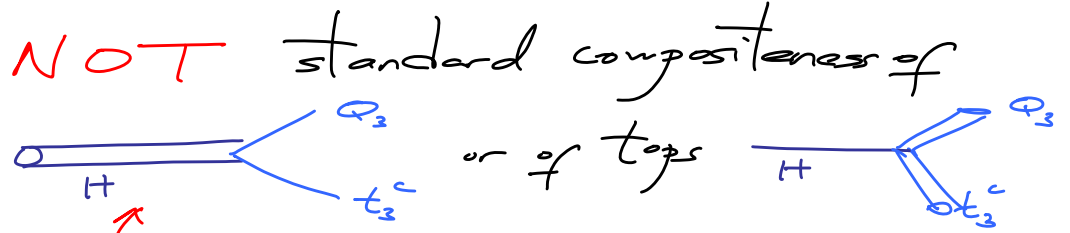 NOT standard compositeness of
Q₃ or of tops Q₃
H H
t₃ᶜ t₃ᶜ